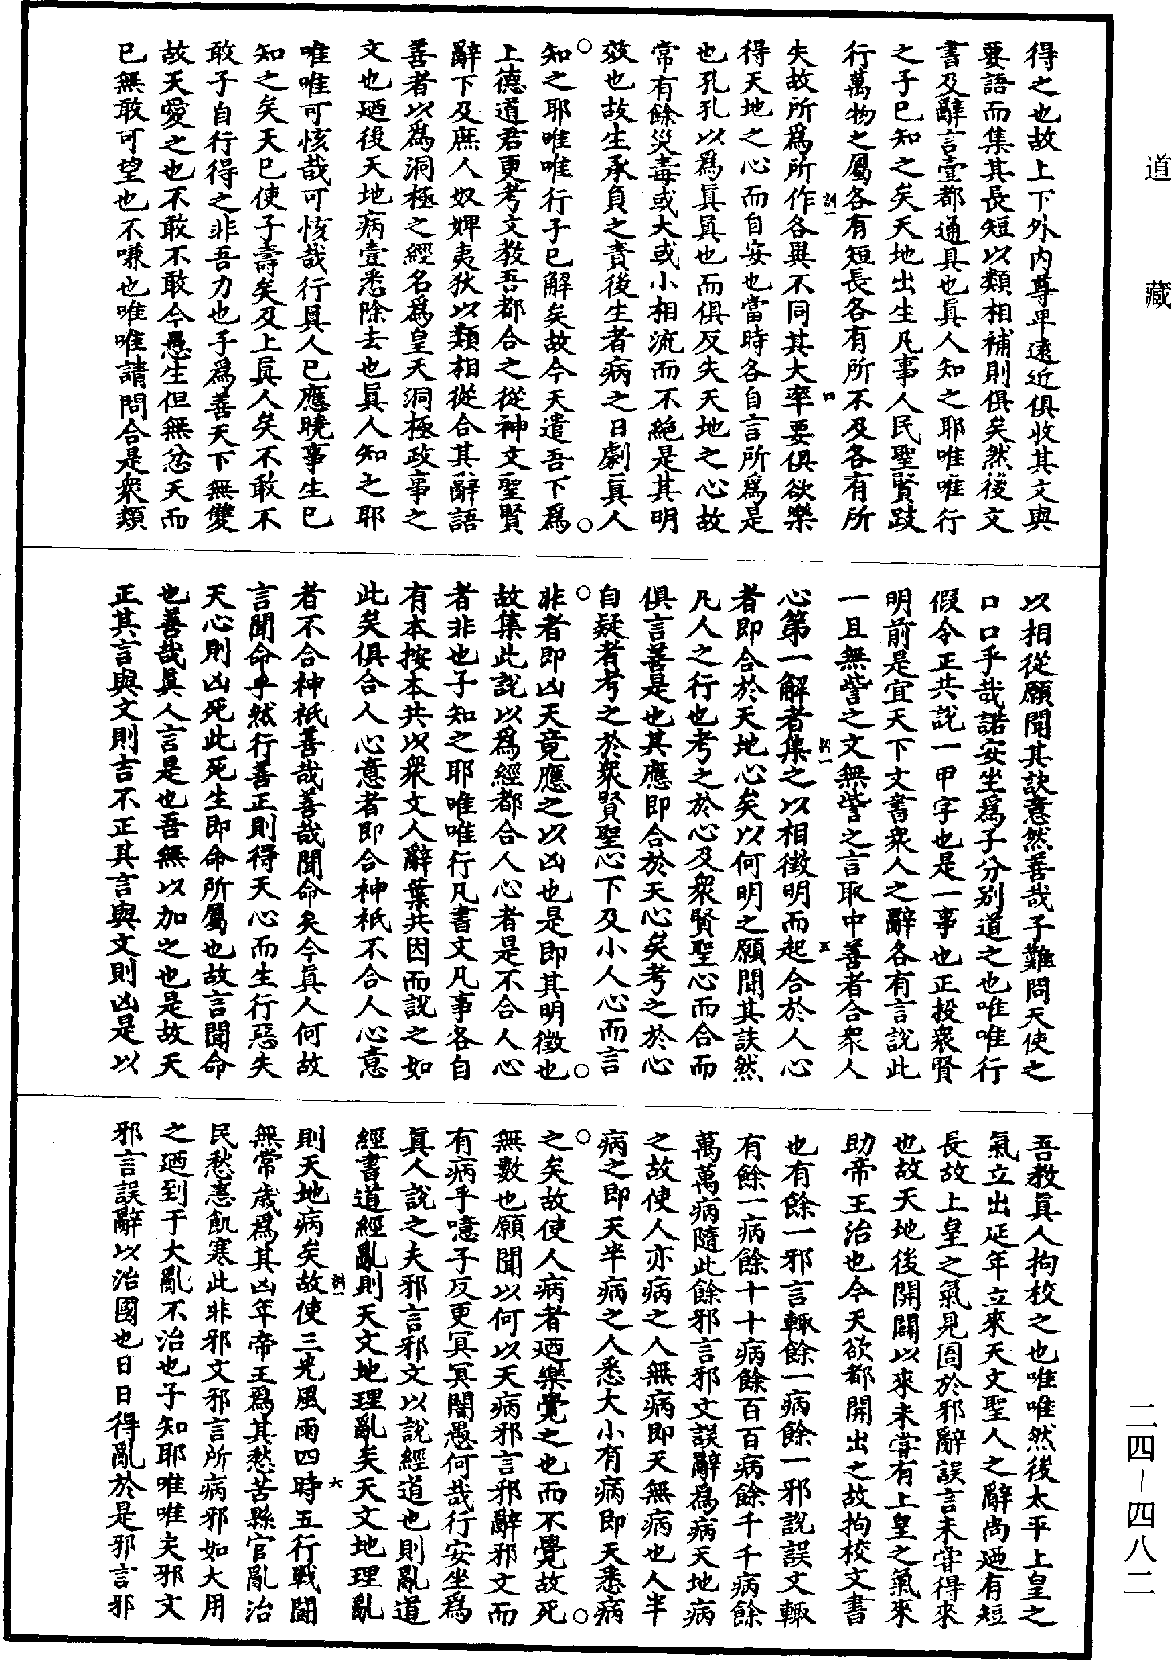 道藏
得之也故上下外內尊卑遠近俱收其文與
要語而集其長短以類相補則俱矣然後文
書及辭言壹都通具也眞人知之耶唯唯行
之子已知之矣天地出生凡事人民聖賢跂
行萬物之屬各有短長各有所不及各有所
失故所爲所作各異不同其大率要俱欲樂
得天地之心而自安也當時各自言所爲是
也孔孔以爲眞眞也而俱反失天地之心故
常有餘災毒或大或小相流而不絕是其明
效也故生承負之責後生者病之日劇眞人
知之耶唯唯行子已解矣故今天遣吾下爲
上德道君更考文教吾都合之從神文聖賢
辭下及庶人奴婢夷狄以類相從合其辭語
善者以爲洞極之經名爲皇天洞極政事之
文也迺後天地病壹悉除去也眞人知之耶
唯唯可㤥哉可㤥哉行眞人已應曉事生已
知之矣天已使子壽矣及上眞人矣不敢不
敢子自行得之非吾力也子爲善天下無雙
故天愛之也不敢不敢今愚生但無忿天而
已無敢可望也不嗛也唯唯請問合是衆類
以相從願聞其訣意然善哉子難問天使之
口口乎哉諾安坐爲子分别道之也唯唯行
假令正共說一甲字也是一事也正投衆賢
明前是宜天下文書衆人之辭各有言說此
一且無訾之文無訾之言取中善者合衆人
心第一解者集之以相徵明而起合於人心
者即合於天地心矣以何明之願聞其訣然
凡人之行也考之於心及衆賢聖心而合而
俱言善是也其應即合於天心矣考之於心
自疑者考之於衆賢聖心下及小人心而言
非者即凶天竟應之以凶也是即其明徵也
故集此說以爲經都合人心者是不合人心
者非也子知之耶唯唯行凡書文凡事各自
有本按本共以衆文人辭葉共因而說之如
此矣俱合人心意者即合神祇不合人心意
者不合神祇善哉善哉聞命矣今眞人何故
言聞命乎然行善正則得天心而生行惡失
天心則凶死此死生即命所屬也故言聞命
也善哉眞人言是也吾無以加之也是故天
正其言與文則吉不正其言與文則凶是以
吾教眞人拘校之也唯唯然後太平上皇之
氣立出延年立來天文聖人之辭尚迺有短
長故上皇之氣見圄於邪辭誤言未嘗得來
也故天地後開闢以來未嘗有上皇之氣來
助帝王治也今天欲都開出之故拘校文書
也有餘一邪言輙餘一病餘一邪說誤文輙
有餘一病餘十十病餘百百病餘千千病餘
萬萬病隨此餘邪言邪文誤辭爲病天地病
之故使人亦病之人無病即天無病也人半
病之即天半病之人悉大小有病即天悉病
之矣故使人病者迺樂覺之也而不覺故死
無數也願聞以何以天病邪言邪辭邪文而
有病乎噫子反更冥冥闇愚何哉行安坐爲
眞人說之夫邪言邪文以說經道也則亂道
經書道經亂則天文地理亂矣天文地理亂
則天地病矣故使三光風雨四時五行戰鬭
無常歲爲其凶年帝王爲其愁苦縣官亂治
民愁恚飢寒此非邪文邪言所病邪如大用
之迺到于大亂不治也子知耶唯唯夫邪文
邪言誤辭以治國也日日得亂於是邪言邪
二四－四八二